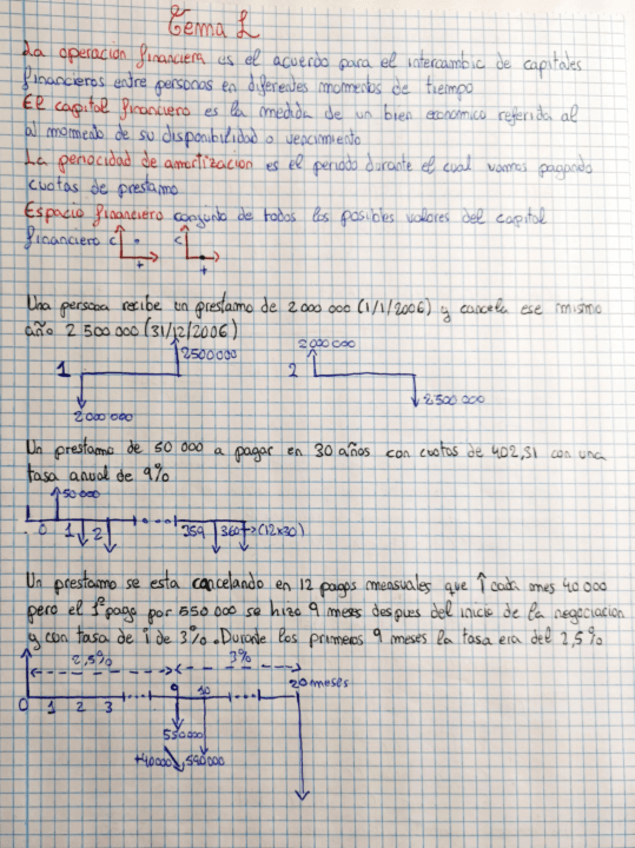 Tema 1
La operación financiera es el acuerdo para el intercambio de capitales
financieros entre personas en diferentes momentos de tiempo
El capital financiero es la medida de un bien economico referida al
al momento de su disponibilidad o vencimiento
La periocidad de amortizacion es el periodo durante el cual vamos pagando
cuotas de prestamo
Espacio financiero conjunto de todos los posibles valores del capital
financiero C + C +
Una persona recibe un prestamo de 2 000 000 (1/1/2006) y cancela ese mismo
año 2 500 000 (31/12/2006)
2500000 2000000
1 2
2000000 2500000
Un prestamo de 50 000 a pagar en 30 años con cuotas de 402,31 con una
tasa anual de 9%
50000
0 1 2 359 360 (12x30)
Un prestamo se esta cancelando en 12 pagos mensuales que ↑ cada mes 40 000
pero el 1º pago por 550 000 se hizo 9 meses despues del inicio de la negociacion
y con tasa de i de 3%. Durante los primeros 9 meses la tasa era del 2,5%
2,5% 3%
0 1 2 3 9 10 20 meses
550000
+40000 590000